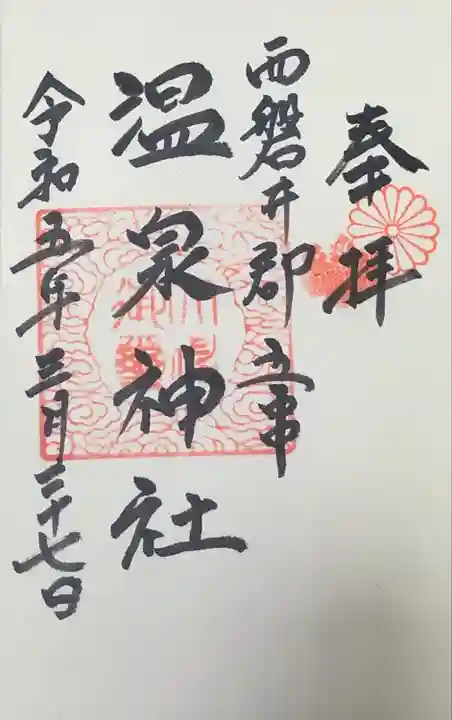 奉拝
西磐井郡
温泉神社
令和五年三月二十七日